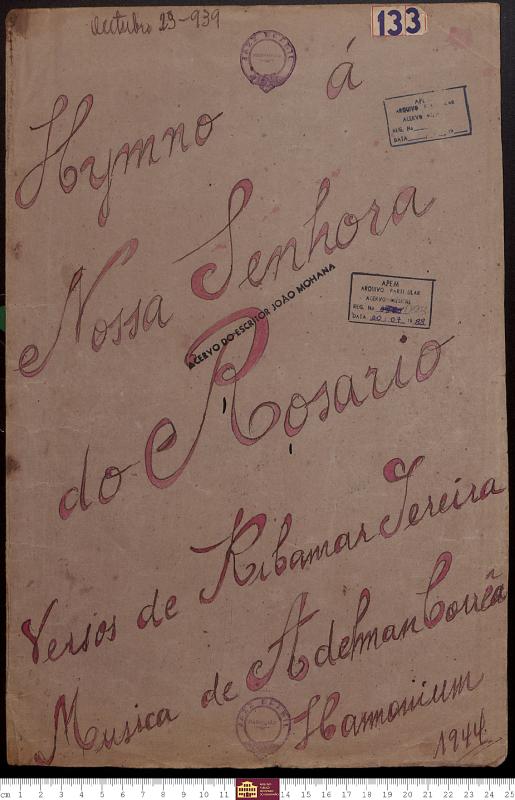 Outubro 29-939
133
Hymno á
Nossa Senhora
do Rosario
ACERVO DO ESCRITOR JOÃO MOHANA
APEM
ACERVO
REG. No
DATA
19
APEM
ARQUIVO PARTICULAR
ACERVO MUSICAL
REG. No
DATA 20.07.1988
Versos de Ribamar Pereira
Musica de Adelman Corrêa
Harmonium
1944
cm 1 2 3 4 5 6 7 8 9 10 11 12 13 14 15 16 17 18 19 20 21 22 23 24 25